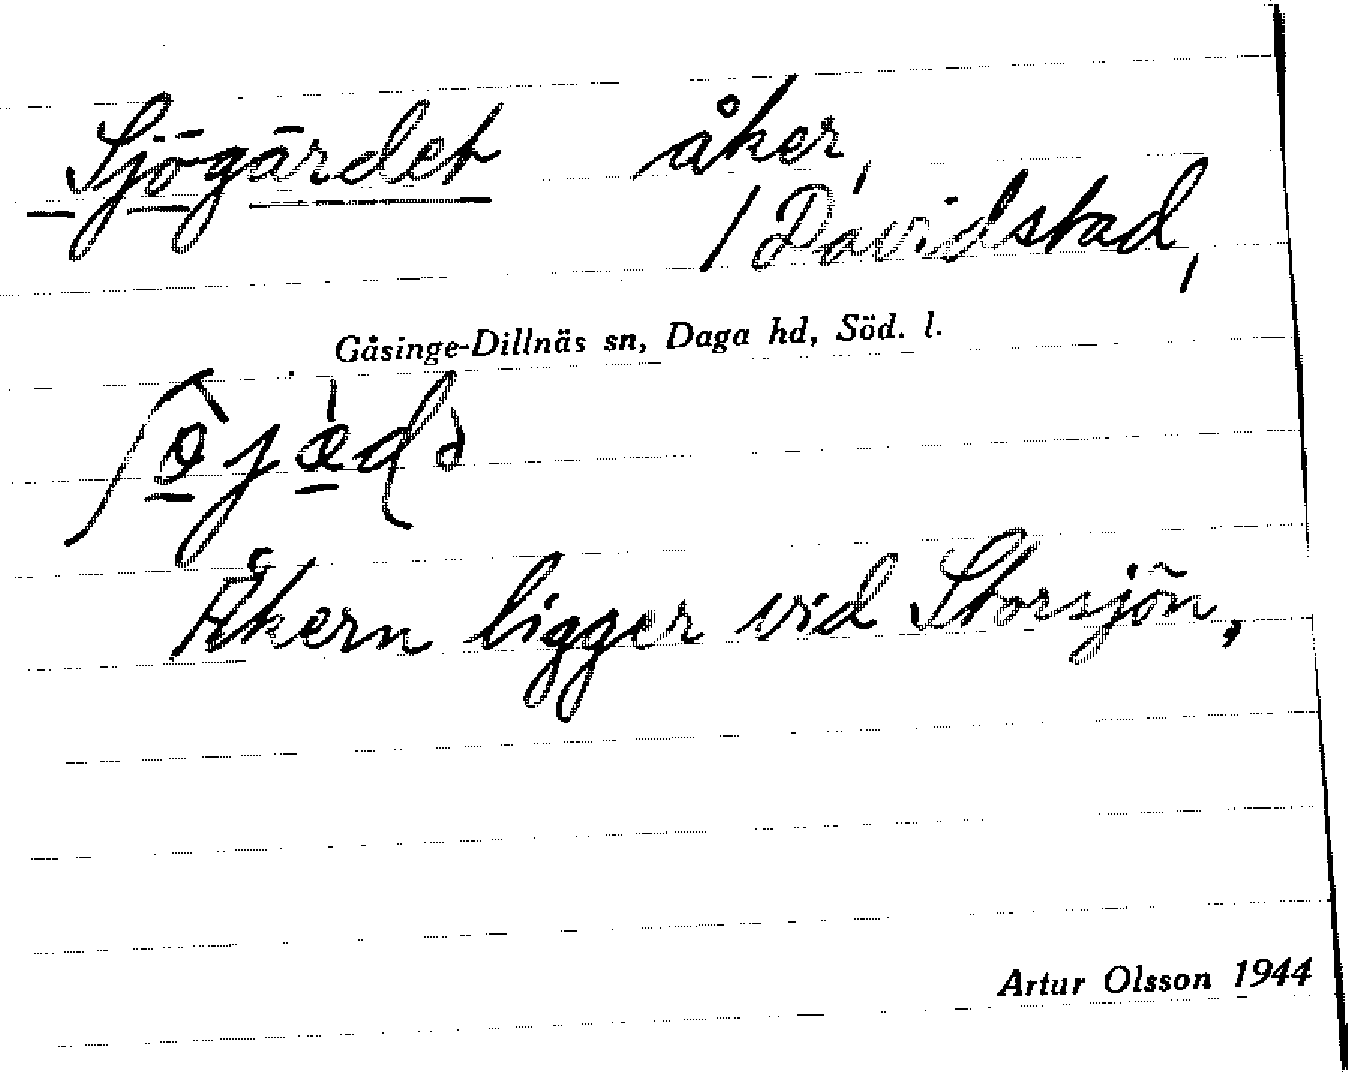 Sjögärdet åker,
/ Davidstad,
Gåsinge-Dillnäs sn, Daga hd, Söd. l.
Åkern ligger vid Storsjön,
Artur Olsson 1944